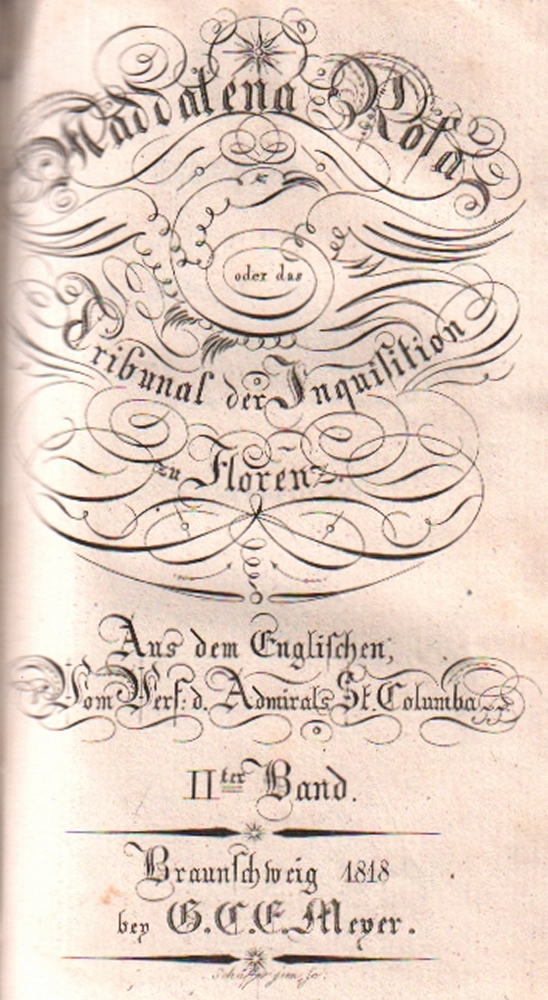 Maddalena Rosa
oder das
Tribunal der Inquisition
zu Florenz.
Aus dem Englischen,
Vom Verf: d. Admirals St. Columba
IIter Band.
Braunschweig 1818
bey G.C.E. Meyer.